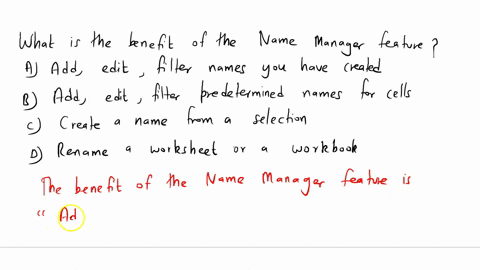 What is the benefit of the Name Manager feature?
A) Add, edit, filter names you have created
B) Add, edit, filter predetermined names for cells
C) Create a name from a selection
D) Rename a worksheet or a workbook
The benefit of the Name Manager feature is
" Ad